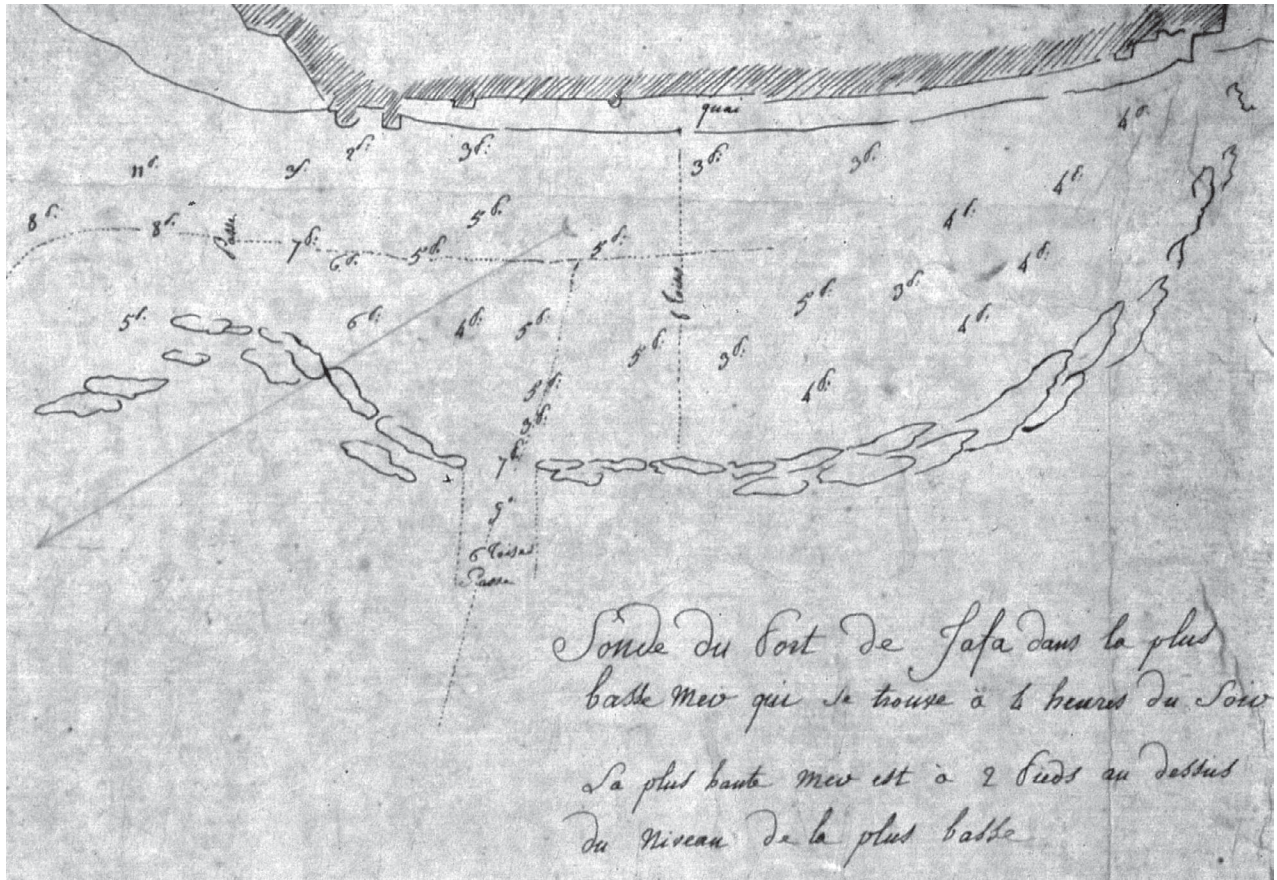 quai
4 p.
2 p.
3 p.
3 p.
3 p.
11 p.
3 p.
4 p.
8 p.
8 p.
Passe
7 p.
6 p.
5 p.
5 p.
5 p.
4 p.
4 p.
5 p.
6 p.
4 p.
5 p.
toises
5 p.
3 p.
4 p.
5 p.
3 p.
5 p.
4 p.
3 p.
7 p.
9
6 toises
Passe
Sonde du Port de Jafa dans la plus
basse mer qui se trouve à 4 heures du Soir
La plus haute mer est à 2 Pieds au dessus
du Niveau de la plus basse